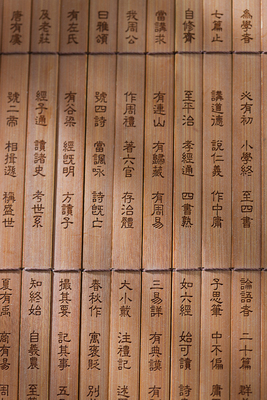 為學者 必有初 小學終 至四書 論語者 二十篇 群
七篇止 講道德 說仁義 作中庸 子思筆 中不偏 庸
自修齊 至平治 孝經通 四書熟 如六經 始可讀 詩
當講求 有連山 有歸藏 有周易 三易詳 有典謨 有
我周公 作周禮 著六官 存治體 大小戴 注禮記 述
曰雅頌 號四詩 當諷咏 詩既亡 春秋作 寓褒貶 別
有左氏 有谷梁 經既明 方讀子 撮其要 記其事 五
及老莊 經子通 讀諸史 考世系 知終始 自羲農 至
唐有虞 號二帝 相揖遜 稱盛世 夏有禹 商有湯 周